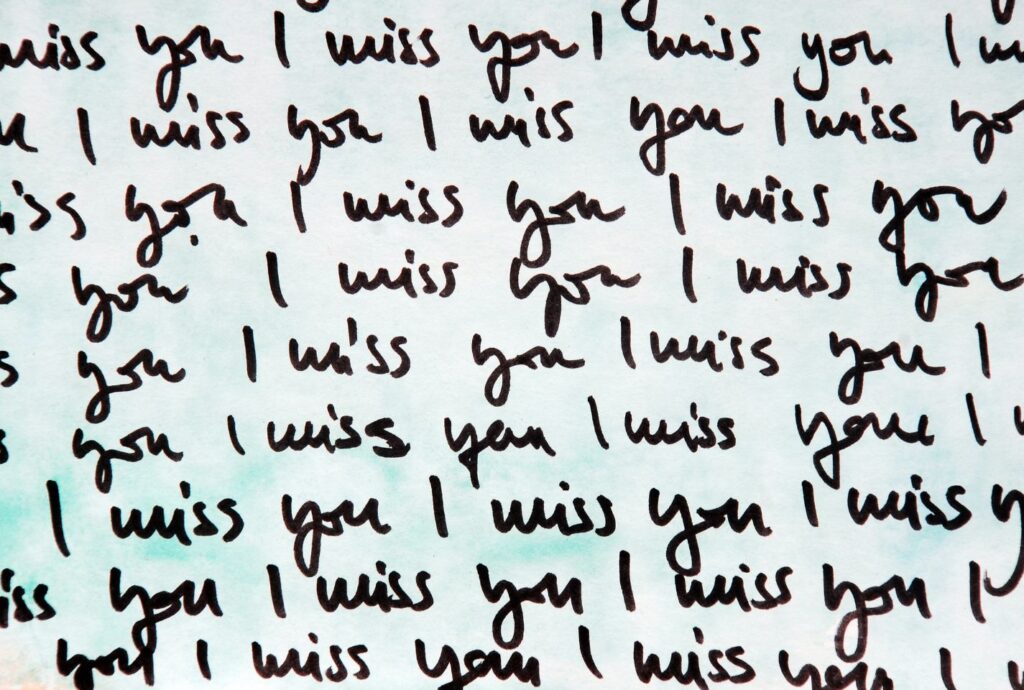 miss you I miss you I miss you I
I miss you I miss you I miss
you I miss you I miss you
you I miss you I miss you
you I miss you I miss you I
you I miss you I miss you I
I miss you I miss you I miss
you I miss you I miss you I
you I miss you I miss you I